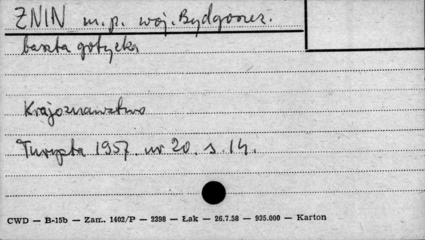 ZNIN m.p. woj. Bydgoszcz.
baszta gotycka
Krajoznawstwo
Turysta 1957. nr 20. s. 14.
CWD — B-15b — Zam. 1402/P — 2398 — Łak — 26.7.58 — 935.000 — Karton